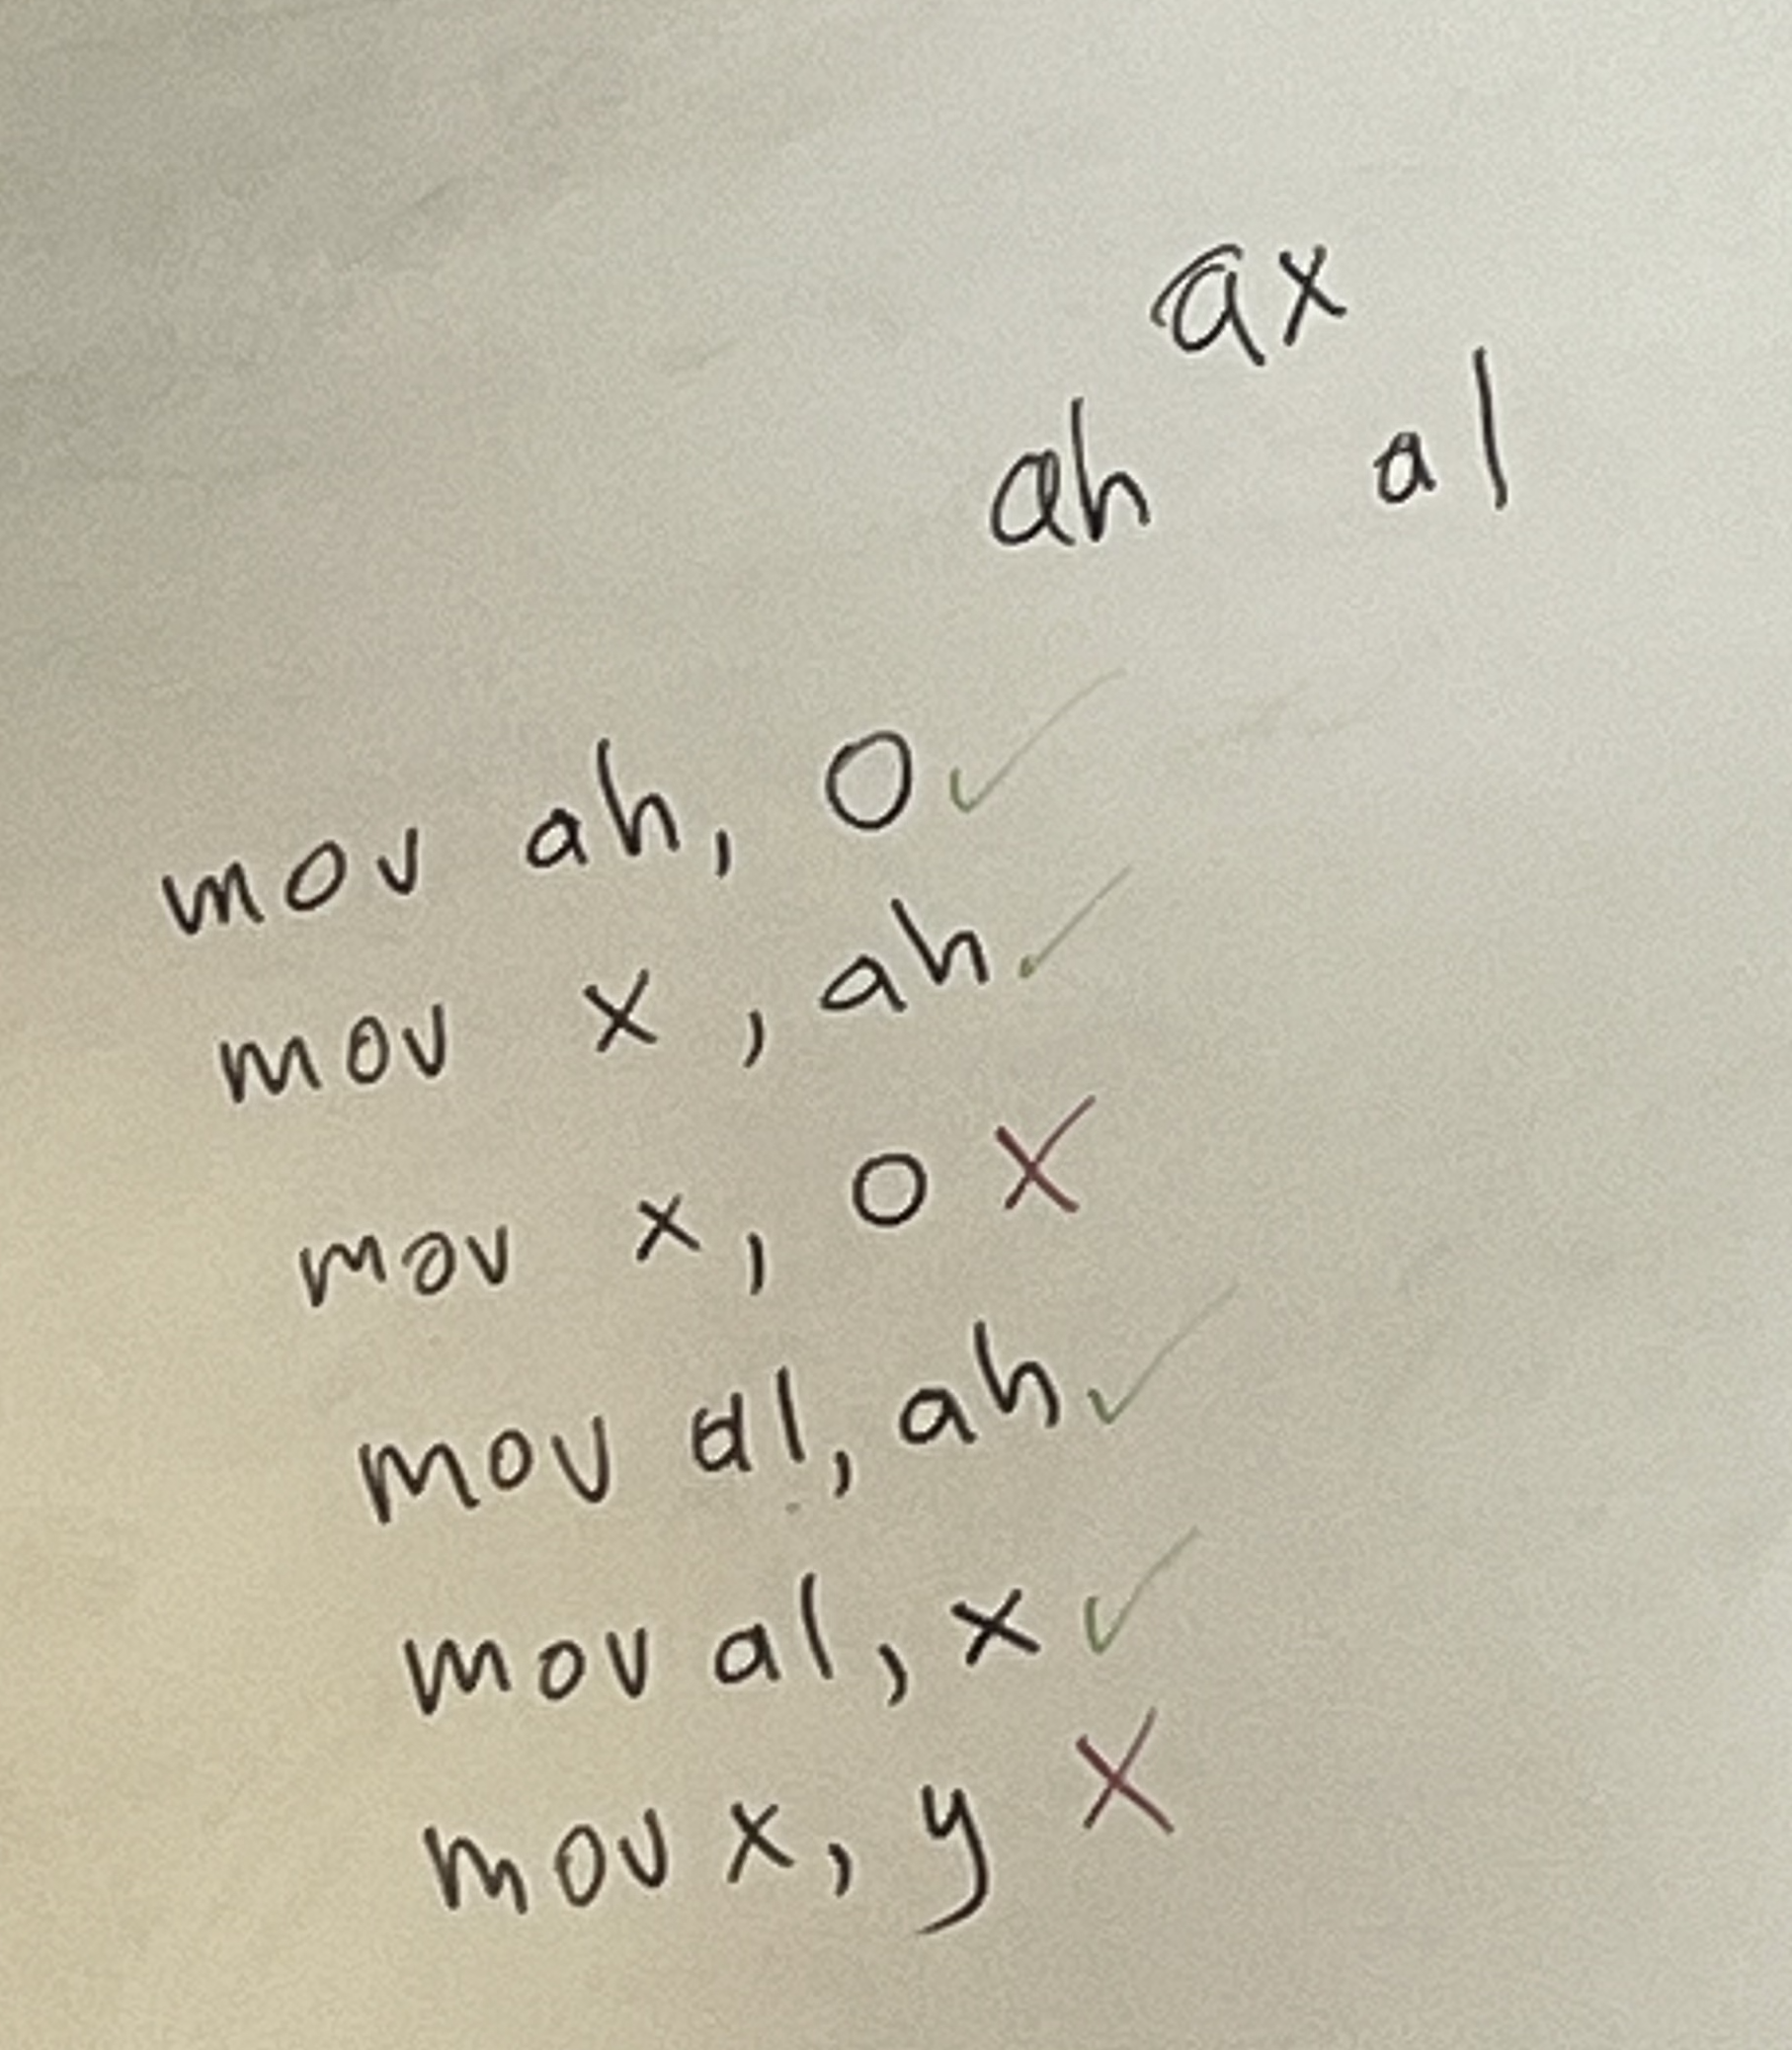 ax
ah al
mov ah, 0 ✓
mov x, ah ✓
mov x, 0 X
mov al, ah ✓
mov al, x ✓
mov x, y X